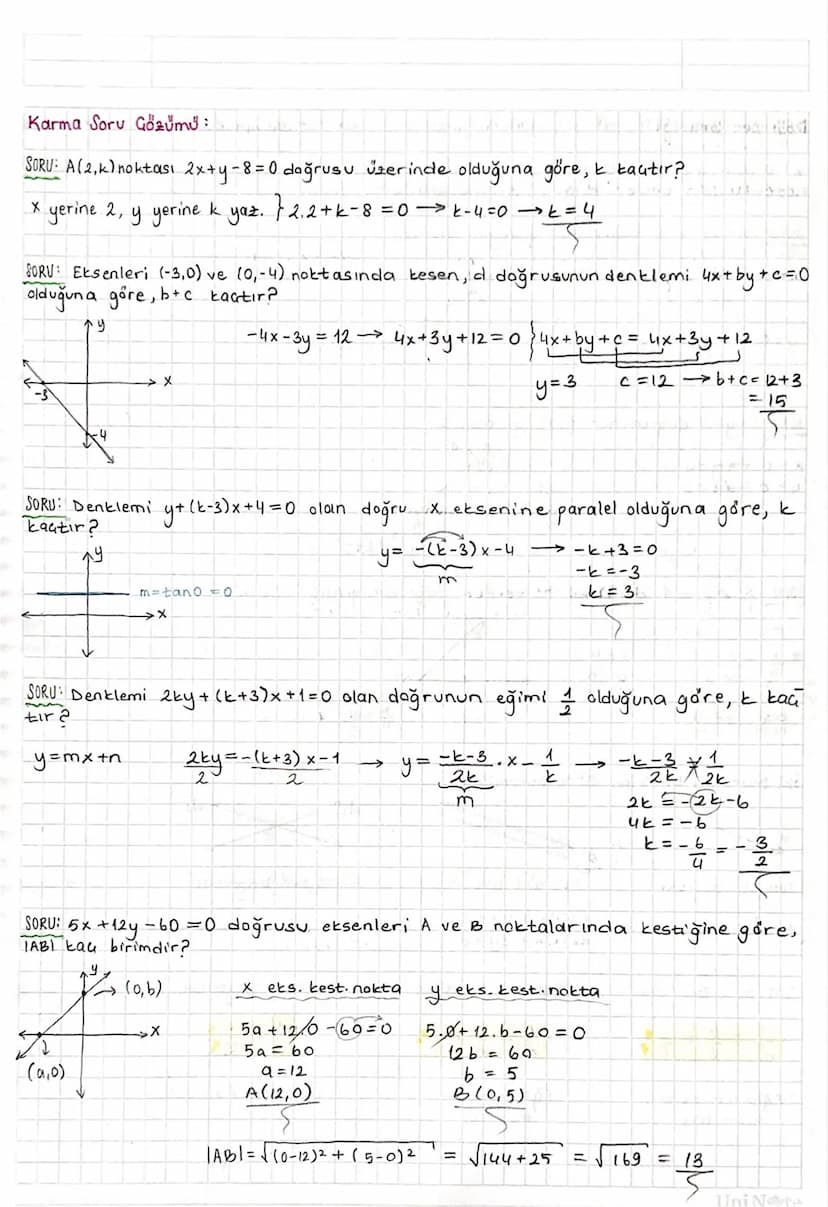 Karma Soru Gözümü:
SORU: A(2,k) noktası 2x+y-8=0 doğrusu üzerinde olduğuna göre, k kaçtır?
x yerine 2, y yerine k yaz. } 2.2+k-8=0 → k-4=0 → k=4
SORU: Eksenleri (-3,0) ve (0,-4) noktasında kesen, d doğrusunun denklemi 4x+by+c=0
olduğuna göre, b+c kaçtır?
y
-4x-3y=12 → 4x+3y+12=0 } 4x+by+c = 4x+3y+12
x
-3
y=3 c=12 → b+c=12+3
=15
-4
SORU: Denklemi y+(k-3)x+4=0 olan doğru x eksenine paralel olduğuna göre, k
kaçtır?
y
y= -(k-3)x-4 → -k+3=0
m
-k=-3
m=tan0=0
k=3
x
SORU: Denklemi 2ky+(k+3)x+1=0 olan doğrunun eğimi 1/2 olduğuna göre, k kaç
tır?
y=mx+n 2ky/2 = -(k+3)x-1/2 → y= -k-3/2k . x - 1/k → -k-3/2k = 1/2k
m
2k = -2k-6
4k = -6
k = -6/4 = -3/2
SORU: 5x+12y-60=0 doğrusu eksenleri A ve B noktalarında kestiğine göre,
|AB| kaç birimdir?
y
(0,b)
x eks. kest. nokta y eks. kest. nokta
x
5a+12.0-60=0 5.0+12.b-60=0
5a=60 12b=60
(a,0)
a=12 b=5
A(12,0) B(0,5)
|AB|=√(0-12)²+(5-0)² = √144+25 = √169 = 13
UniNote